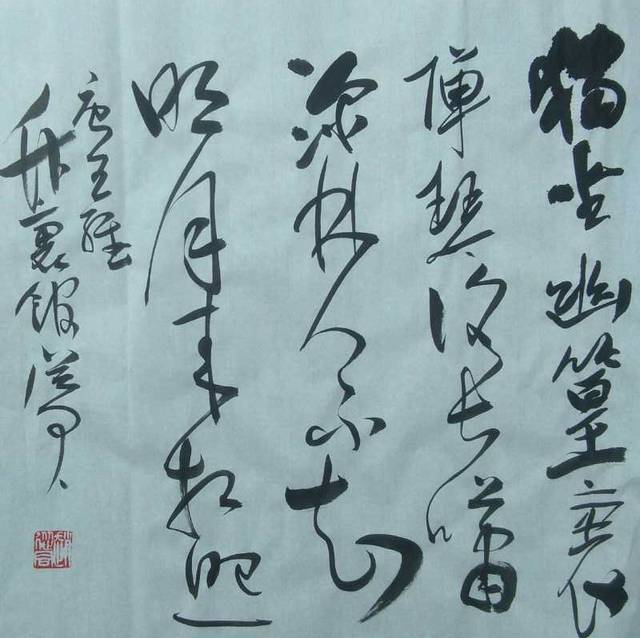 獨坐幽篁裏
彈琴復長嘯
深林人不知
明月来相照
唐王維
竹裏館